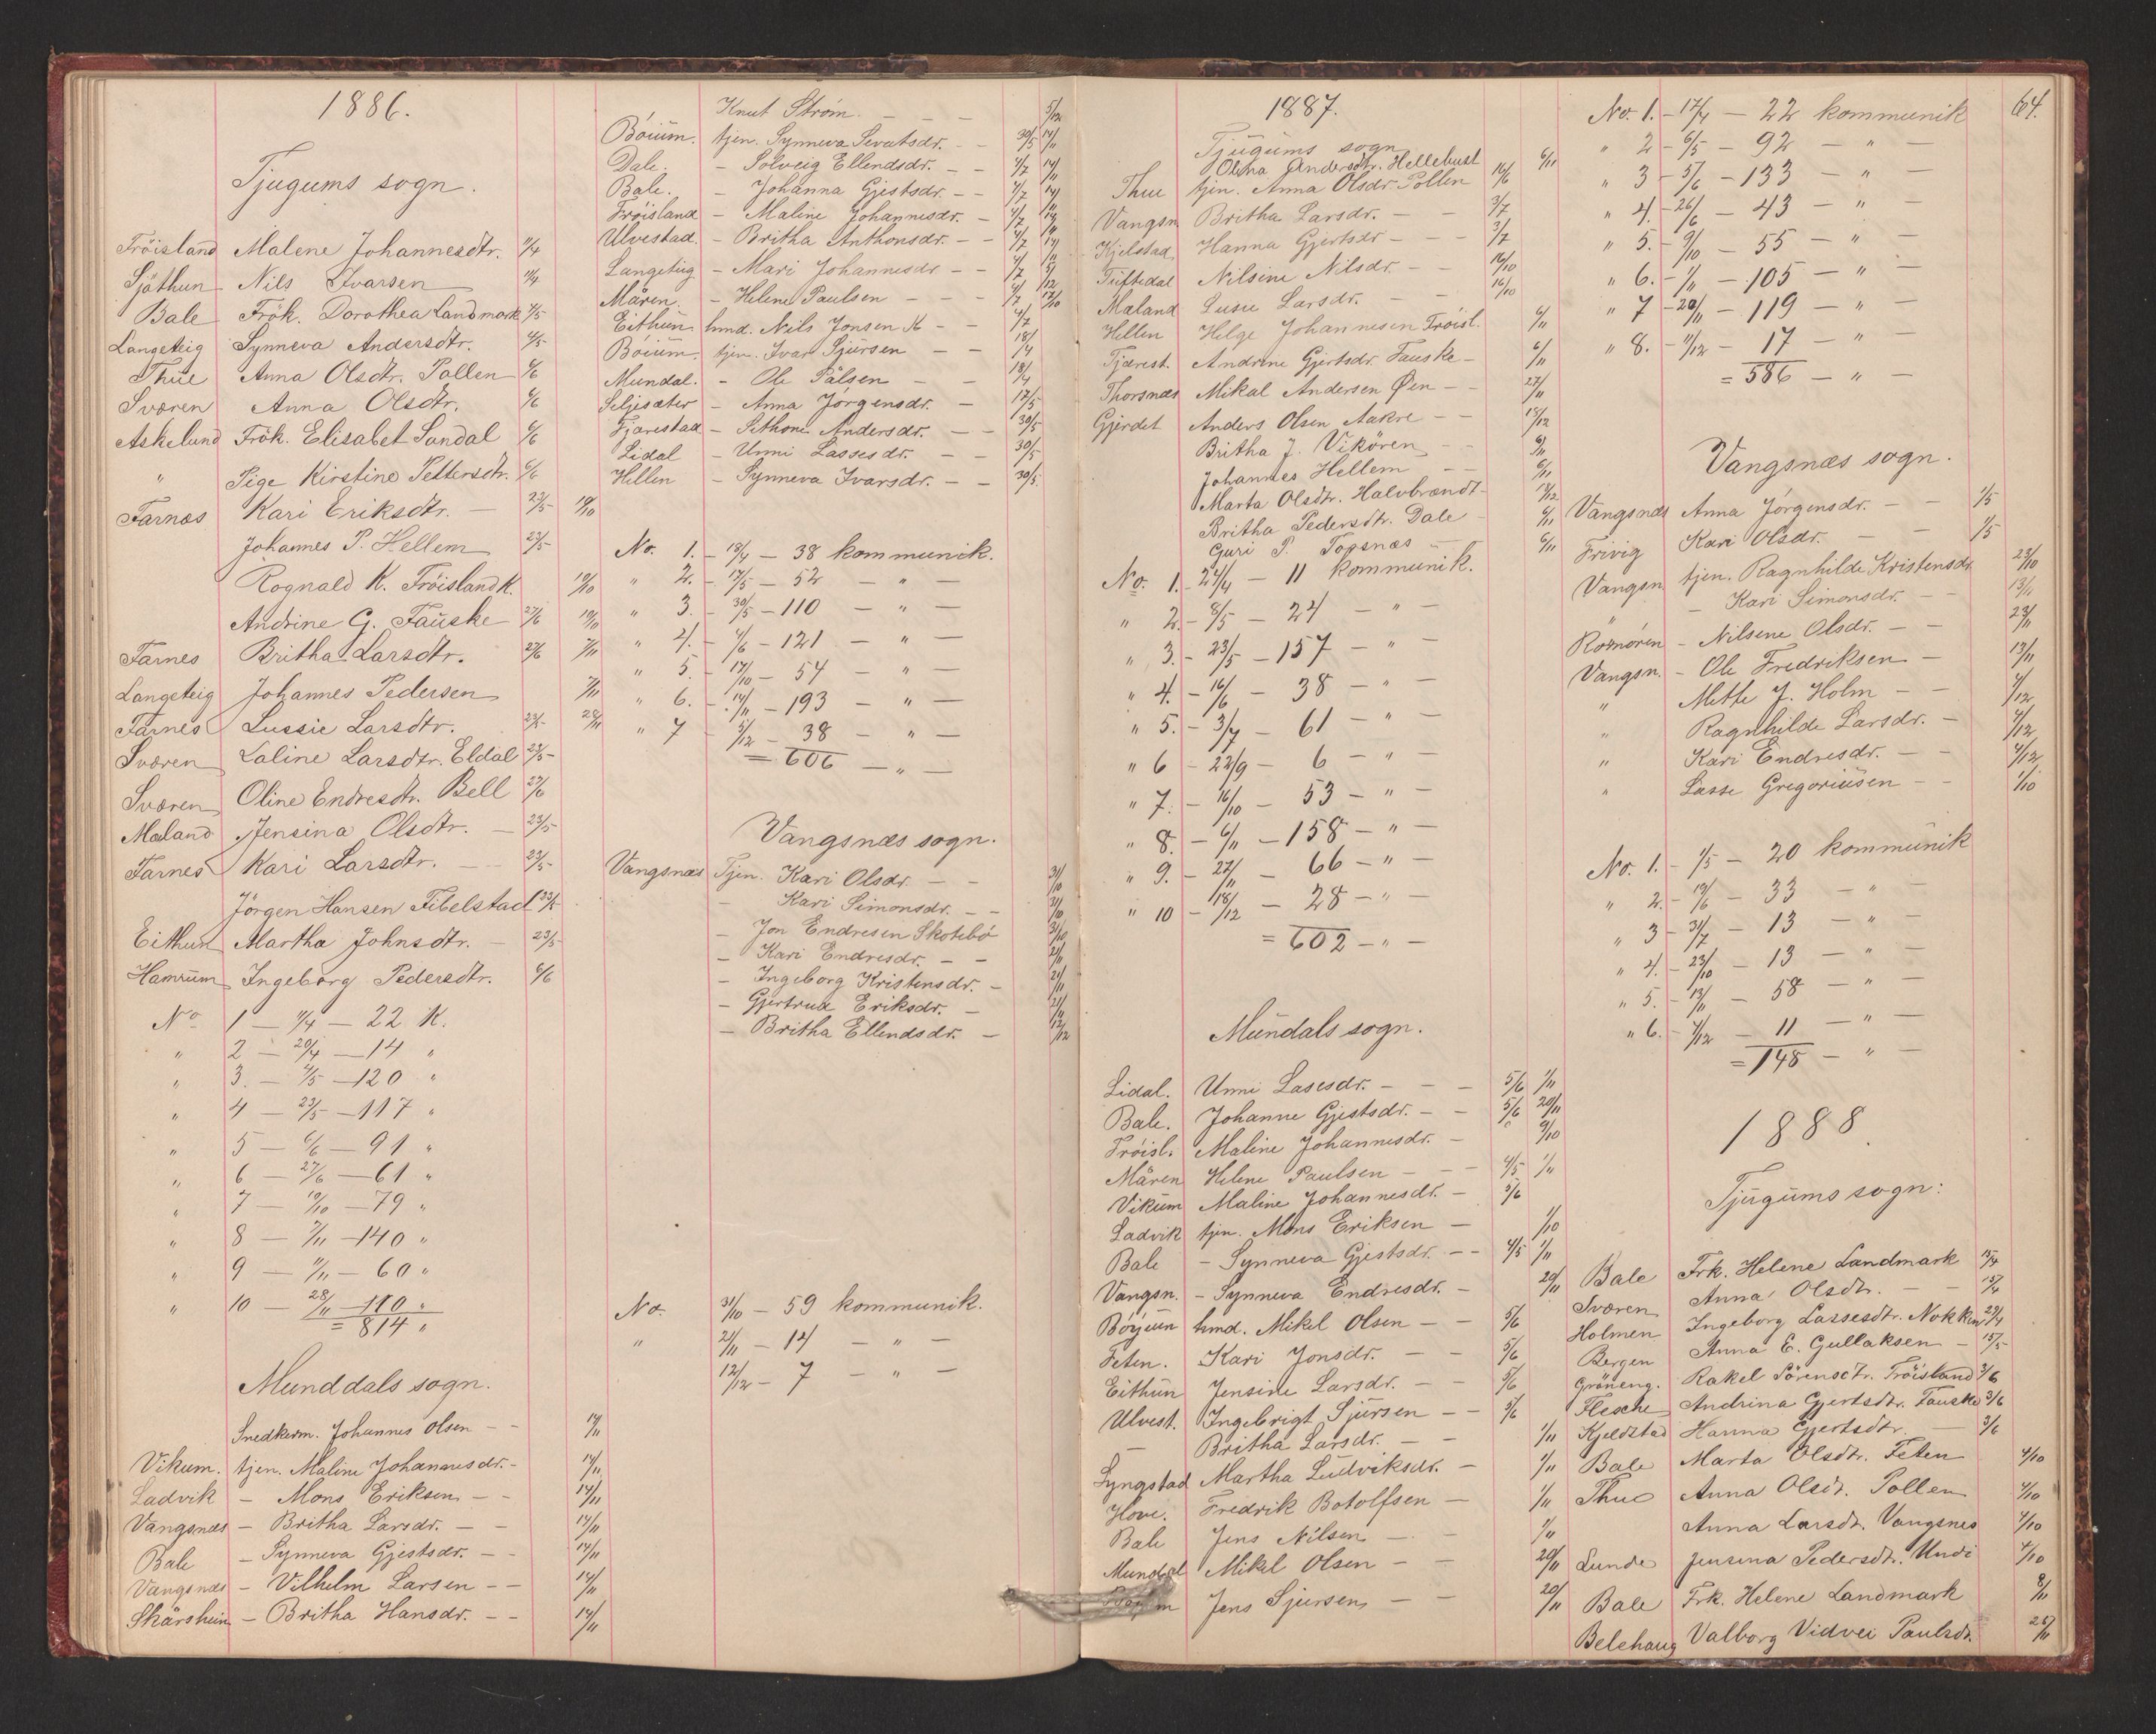 1886.
Tjugums sogn.
Fröisland Malene Johannesdtr. 11/4
Sjöthun Nils Ivarsen 11/4
Bale Frök. Dorothea Landmark 4/5
Langeteig Synneva Andersdtr. 4/5
Thue Anna Olsdtr. Pollen 6/6
Sværen Anna Olsdtr. 6/6
Askelund Frök. Elisabet Sandal 6/6
" Pige Kirstine Pettersdtr. 6/6
Farnæs Kari Eriksdtr. — 23/5 10/10
Johannes P. Hellem 23/5
Rognald K. Fröislandk. 10/10
Andrine G. Fauske 27/6 10/10
Farnes Britha Larsdtr. 27/6 7/11
Langeteig Johannes Pedersen 7/11
Farnes Lussie Larsdtr. 23/5 28/11
Sværen Laline Larsdtr. Eldal 23/5
Sværen Oline Endresdtr. Bell 27/6
Maland Jensina Olsdtr. — 23/5
Farnes Kari Larsdtr. — 23/5
Jörgen Hansen Fibelstad 23/5
Eithun Martha Johnsdtr. — 23/5
Hamrum Ingeborg Pedersdtr. 6/6
No 1 — 11/4 — 22 K.
" 2 — 20/4 — 14 "
" 3. — 4/5 — 120 "
" 4 — 23/5 — 117 "
" 5 — 6/6 — 91 "
" 6 — 27/6 — 61 "
" 7 — 10/10 — 79 "
" 8 — 7/11 — 140 "
" 9 — 11/11 — 60 "
" 10 — 28/11 — 110 "
= 814 "
Munddals sogn.
Snedkerm. Johannes Olsen — — 14/11
Vikum. tjen. Maline Johannesdr. - 14/11
Ladvik — Mons Eriksen — — 14/11
Vangsnæs — Britha Larsdr. — — 14/11
Bale — Synneva Gjestsdr. — — 14/11
Vangsnæs — Vilhelm Larsen — — 14/11
Skårshein — Britha Hansdr. — — 14/11
Knut Ström. — — — 5/12
Böium. tjen. Synneva Sevatsdr. — 30/5 14/11
Dale. — Solveig Ellendsdr. — — 4/7 14/11
Bale. — Johanna Gjestsdr. — — 4/7 14/11
Fröisland — Maline Johannesdr. — 4/7 14/11
Ulvestad. — Britha Anthonsdr. — — 4/7 14/11
Langeteig — Mari Johannesdr — — 4/7 5/12
Mären. — Helene Paulsen — — — 4/7 17/10
Eithun hmd. Nils Jonsen K — — 4/7
Böium. tjen. Ivar Sjursen — — 18/4
Mundal. — Ole Pålsen — — 18/4
Seljesæter — Anna Jørgensdr. — 17/5
Fjærestad — Sithone Andersdr. — — 30/5
Lidal — Unni Lassesdr. — — 30/5
Hillen — Synneva Ivarsdr. — — 30/5
No. 1. — 18/4 — 38 kommunik.
" 2. — 17/5 — 52 — " —
" 3. — 30/5 — 110 — " —
" 4. — 4/6 — 121 — " —
" 5. — 17/10 — 54 — " —
" 6. — 14/11 — 193 — " —
" 7 — 5/12 — 38 — " —
= 606 — " —
Vangsnæs sogn.
Vangsnæs Tjen. Kari Olsdr. — — 31/10
— Kari Simonsdr. — — 31/10
— Jon Endresen Skotebö 31/10
— Kari Endresdr. — — 21/11
— Ingeborg Kristensdr. — 21/11
— Gjertrud Eriksdr. — 21/11
— Britha Ellendsdr. — 12/12
No. 31/10 — 59 kommunik.
" 21/11 — 14 — " —
12/12 — 7 — " —
1887.
Tjugums sogn
Olina Andersdtr. Hellebust 6/11
Thue tjen. Anna Olsdr. Pollen 16/6
Vangsn Britha Larsdr. — — 3/7
Kjelstad Hanna Gjertsdr — — — 3/7
Tuftedal Nilsine Nilsdr. — — 16/10
Maland Lusie Larsdr. — — 16/10
Hellen Helge Johannesen Fröisl. 6/11
Fjærest. Andrine Gjertsdr. Fauske — 6/11
Thorsnæs Mikal Andersen Øen — — 27/11
Gjerdet Anders Olsen Aakre — — 18/12
Britha J. Vikören — — 6/11
Johannes Hellem — — 6/11
Marta Olsdtr. Halvbrændt — 18/12
Britha Pedersdtr. Dale — 6/11
Guri P. Topsnæs — 6/11
No. 1. — 24/4 — 11 kommunik.
" 2. — 8/5 — 24 — " —
" 3. — 23/5 — 157 — " —
" 4. — 16/6 — 38 — " —
" 5. — 3/7 — 61 — " —
" 6 — 22/9 — 6 — " —
" 7. — 16/10 — 53 — " —
" 8. — 6/11 — 158 — " —
" 9. — 27/11 — 66 — " —
" 10 — 18/12 — 28 — " —
= 602 — " —
Mundals sogn.
Lidal. Unni Lasesdr. — — — 5/6 1/11
Bale. Johanne Gjestsdr. — — 5/6 20/11
Fröisl. Maline Johannesdr. — 9/10
Mären Helene Paulsen — — — 4/5 1/11
Vikum Maline Johannesdr. — 5/6
Ladvik tjen. Mons Eriksen — 1/10
Bale — Synneva Gjestsdr. — — 4/5 1/11
Vangsn. — Synneva Endresdr. — 20/11
Böyum hmd. Mikel Olsen — — 5/6
Feten. Kari Jonsdr. — — 5/6
Eithun Jensine Larsdr. — — 5/6
Ulvest. Ingebrigt Sjursen — — 5/6
— Britha Larsdr. — — 1/11
Lyngstad Martha Ludviksdr. — 1/11
Hove. Fredrik Botolfsen — 1/11
Bale Jens Nilsen — — 1/11
Mundal Mikel Olsen — — 20/11
Jens Sjursen — — 20/11
64.
No. 1. — 17/4 — 22 kommunik
" 2 — 6/5 — 92 — " —
" 3 — 5/6 — 133 — " —
" 4. — 26/6 — 43 — " —
" 5. — 9/10 — 55 — " —
" 6. — 1/11 — 105 — " —
" 7 — 20/11 — 119 — " —
" 8. — 11/12 — 17 — " —
= 586 — " —
Vangsnæs sogn.
Vangsnæs Anna Jörgensdr. — 1/5
Frivig Kari Olsdr. — — 1/5
Vangsn. tjen. Ragnhilde Kristensdr 23/10
" — Kari Simonsdr. — — 13/11
Rosnoren — Nilsene Olsdr. — — 23/11
Vangsn. — Ole Fredriksen — 13/11
" Mette J. Holm — — 4/12
" Ragnhilde Larsdr. — 4/12
" Kari Endresdr. — — 4/12
" Lasse Gregoriusen — — 1/10
No. 1. — 1/5 — 20 kommunik
" 2. — 19/6 — 33 — " —
" 3 — 31/7 — 13 — " —
" 4. — 23/10 — 13 — " —
" 5. — 13/11 — 58 — " —
" 6. — 4/12 — 11 — " —
= 148 — " —
1888.
Tjugums sogn:
Bale Frk. Helene Landmark 15/4
Sværen Anna Olsdtr. — — 15/4
Holmen Ingeborg Lassesdtr. Nokken 29/4
Bergen Anna E. Gullaksen — 15/5
Gröneng. Rakel Sörensdtr. Fröisland 3/6
Flesche Andrina Gjertsdtr. Fauske 3/6
Kjeldstad Hanna Gjertsdtr. — 3/6
Bale Marta Olsdtr. Feten 4/10
Thue Anna Olsdt. Pollen 4/10
Anna Larsdt. Vangsnes 4/10
Lunde Jensina Pedersdtr. Undi 4/10
Bale Frk. Helene Landmark 8/11
Belehaug Valborg Vidvei Paulsdt. 25/11